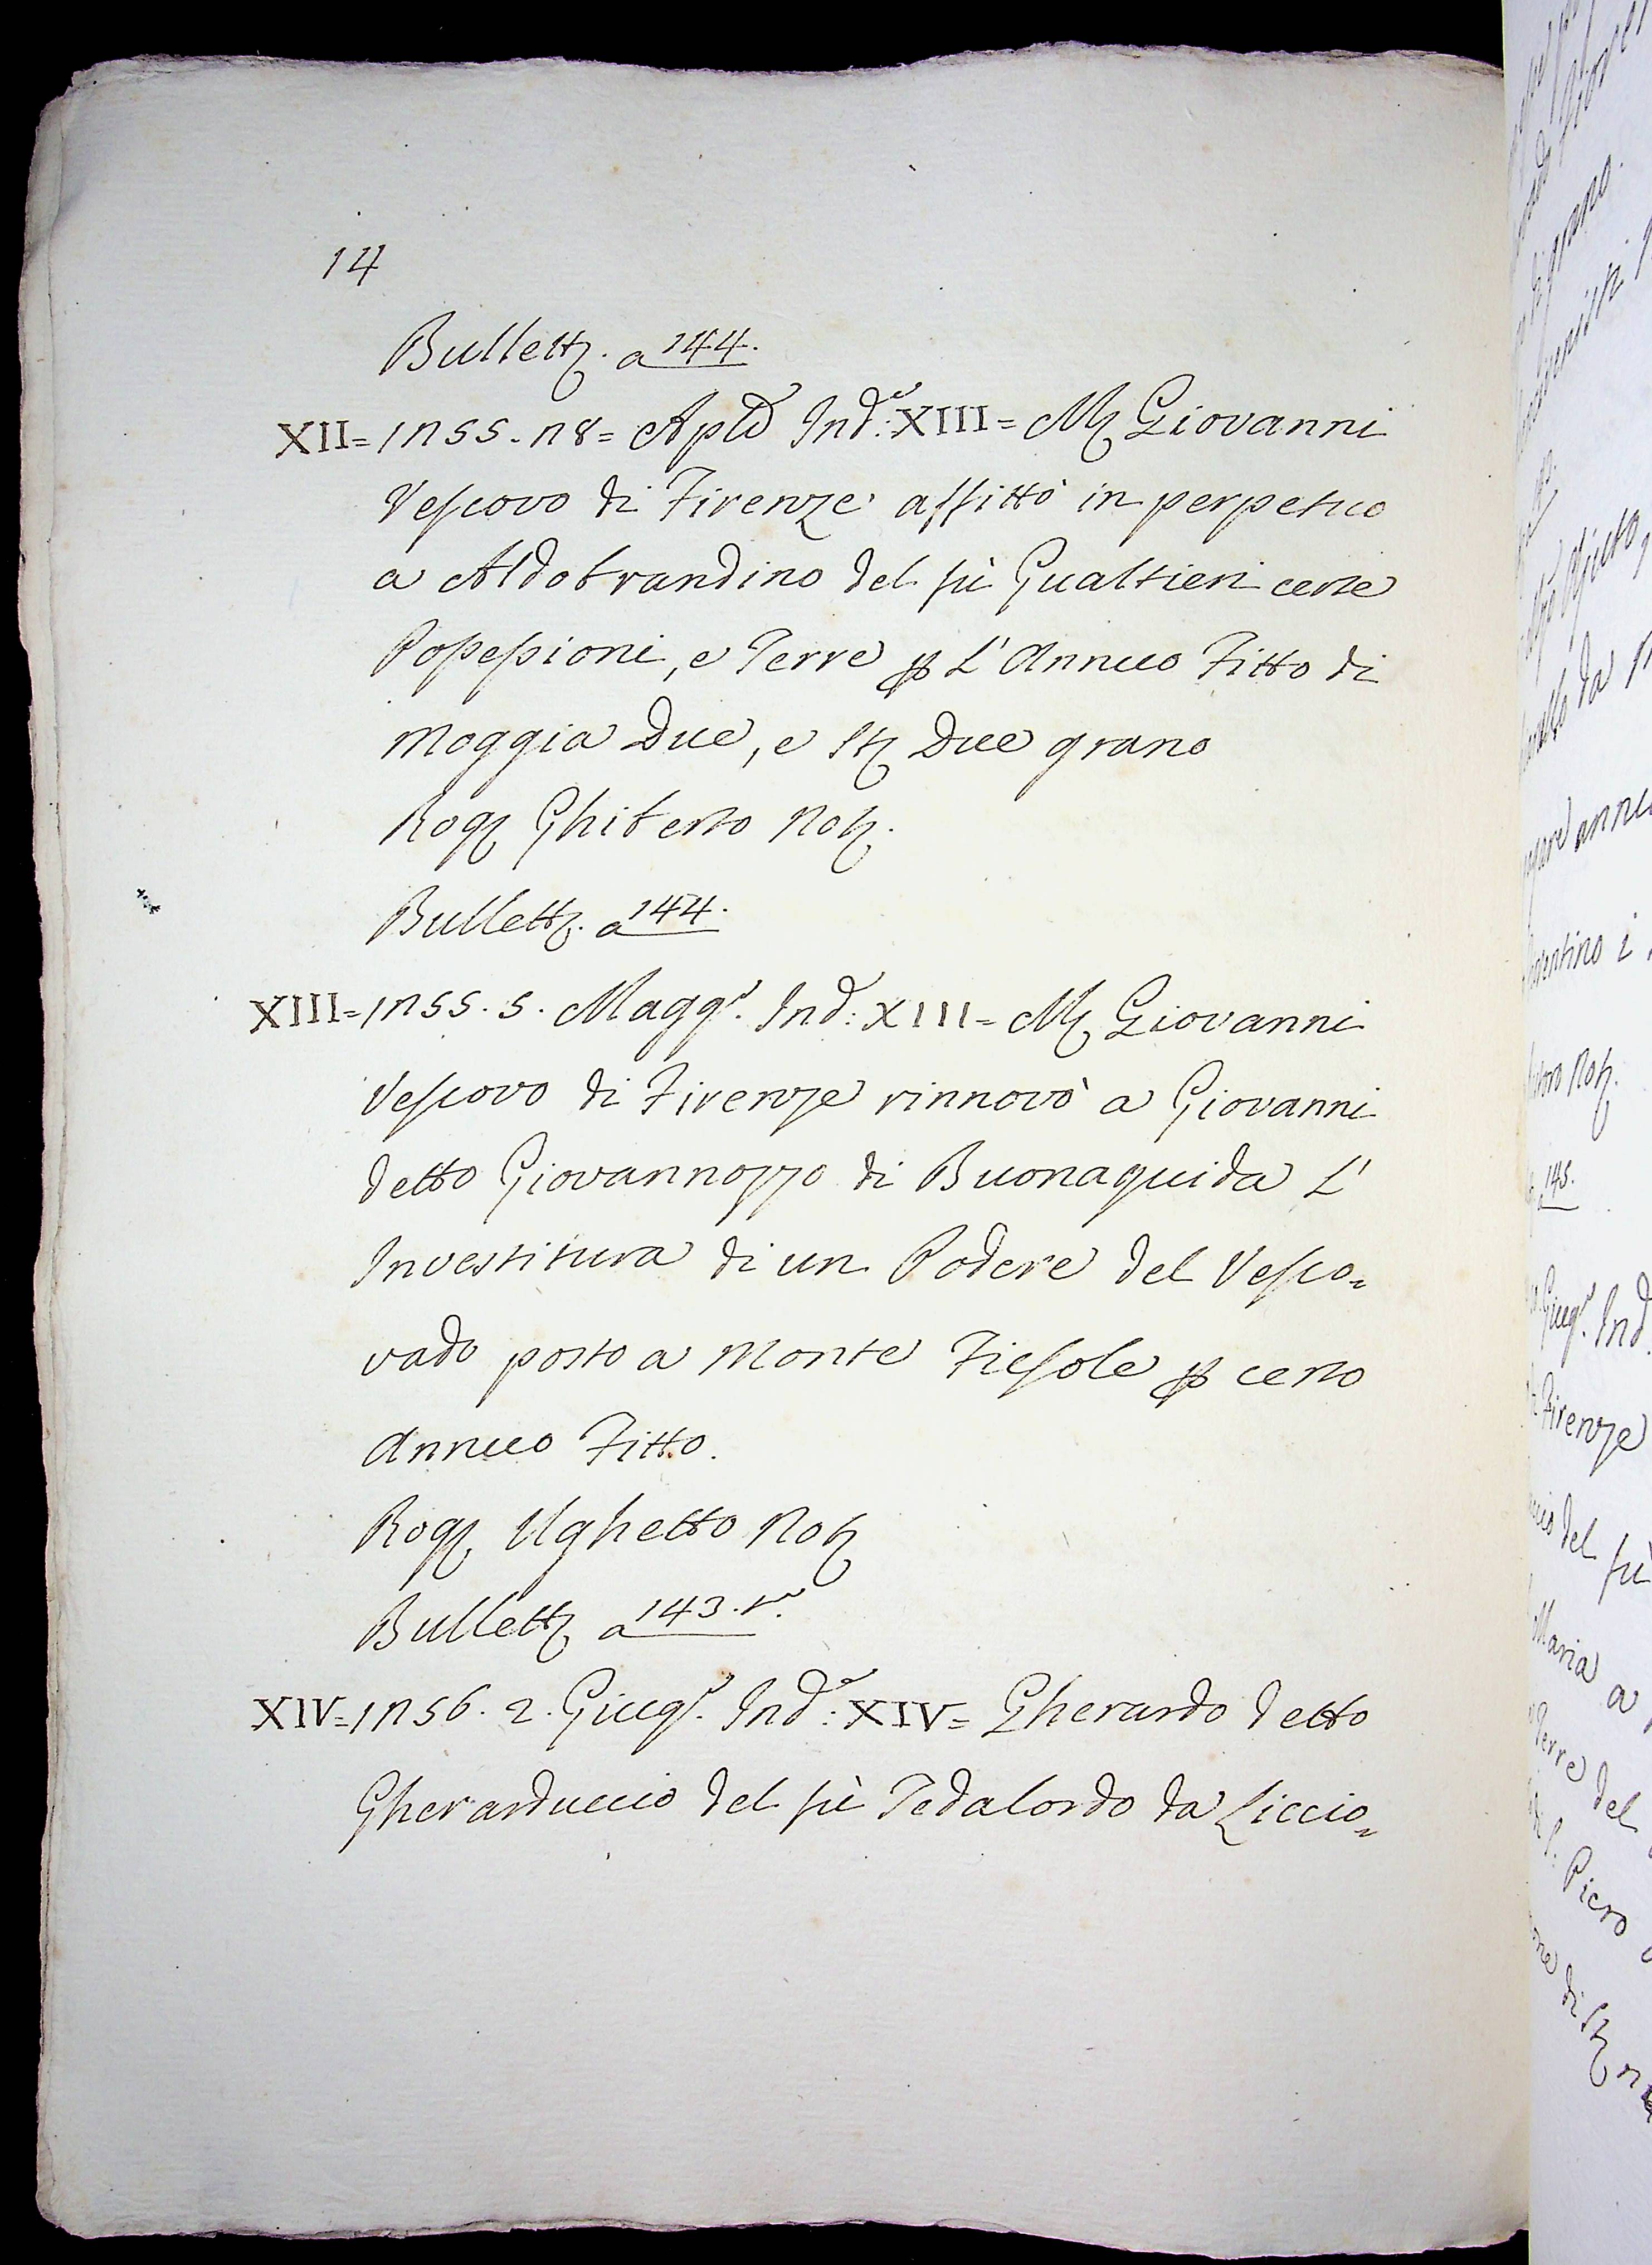 14
Bullettz. a 144.
XII = 1255. 28 = Aple Ind.e XIII = Mz Giovanni
Vescovo di Firenze affittò in perpetuo
a Aldobrandino del fù Gualtieri certe
Possessioni, e Terre p L' Annuo Fitto di
Moggia Due, e Stz Due grano
Rogz Ghiberto Notz.
Bullettz. a 144.
XIII = 1255. 5. Magg.o Ind: XIII = Mz Giovanni
Vescovo di Firenze rinnovò a Giovanni
detto Giovannozzo di Buonaguida L'
Investitura di un Podere del Vesco=
vado posto a Monte Fiesole p certo
Annuo Fitto.
Rogz Ughetto Notz
Bullettz a 143. v.o
XIV = 1256. 2. Giug.o Ind.e: XIV = Gherardo detto
Gherarduccio del fù Tedalordo da Liccio=